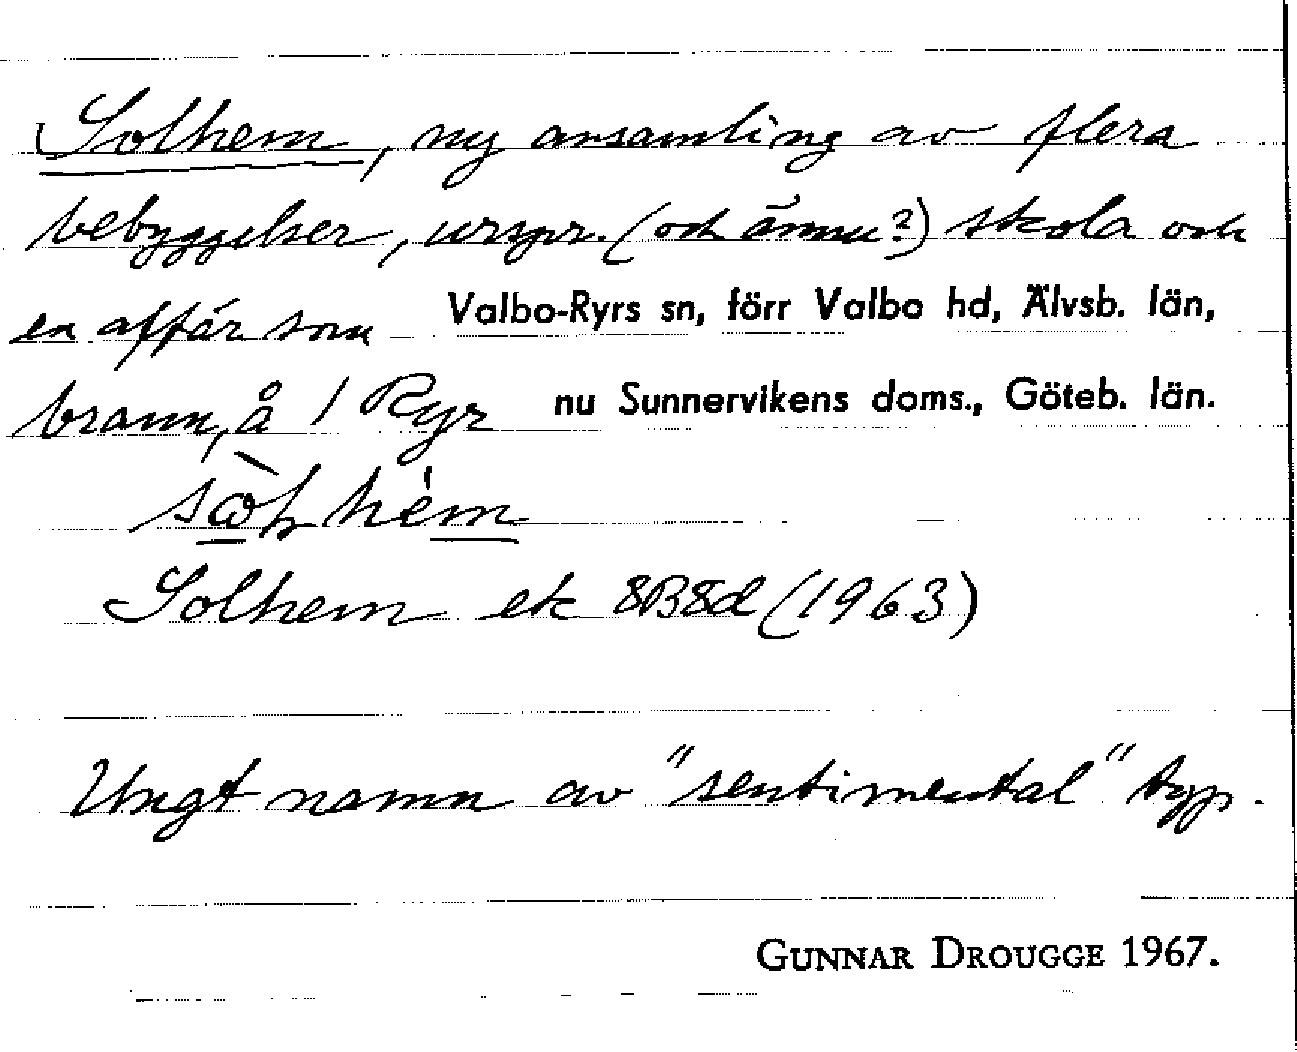 Solhem, ny ansamling av flera
bebyggelser, urspr. (och ännu?) skola och
en affär som Valbo-Ryrs sn, förr Valbo hd, Älvsb. län,
brann, å 1 Ryr nu Sunnervikens doms., Göteb. län.
Solhem ek 8B8d (1963)
Ungt namn av "sentimental" typ.
GUNNAR DROUGGE 1967.